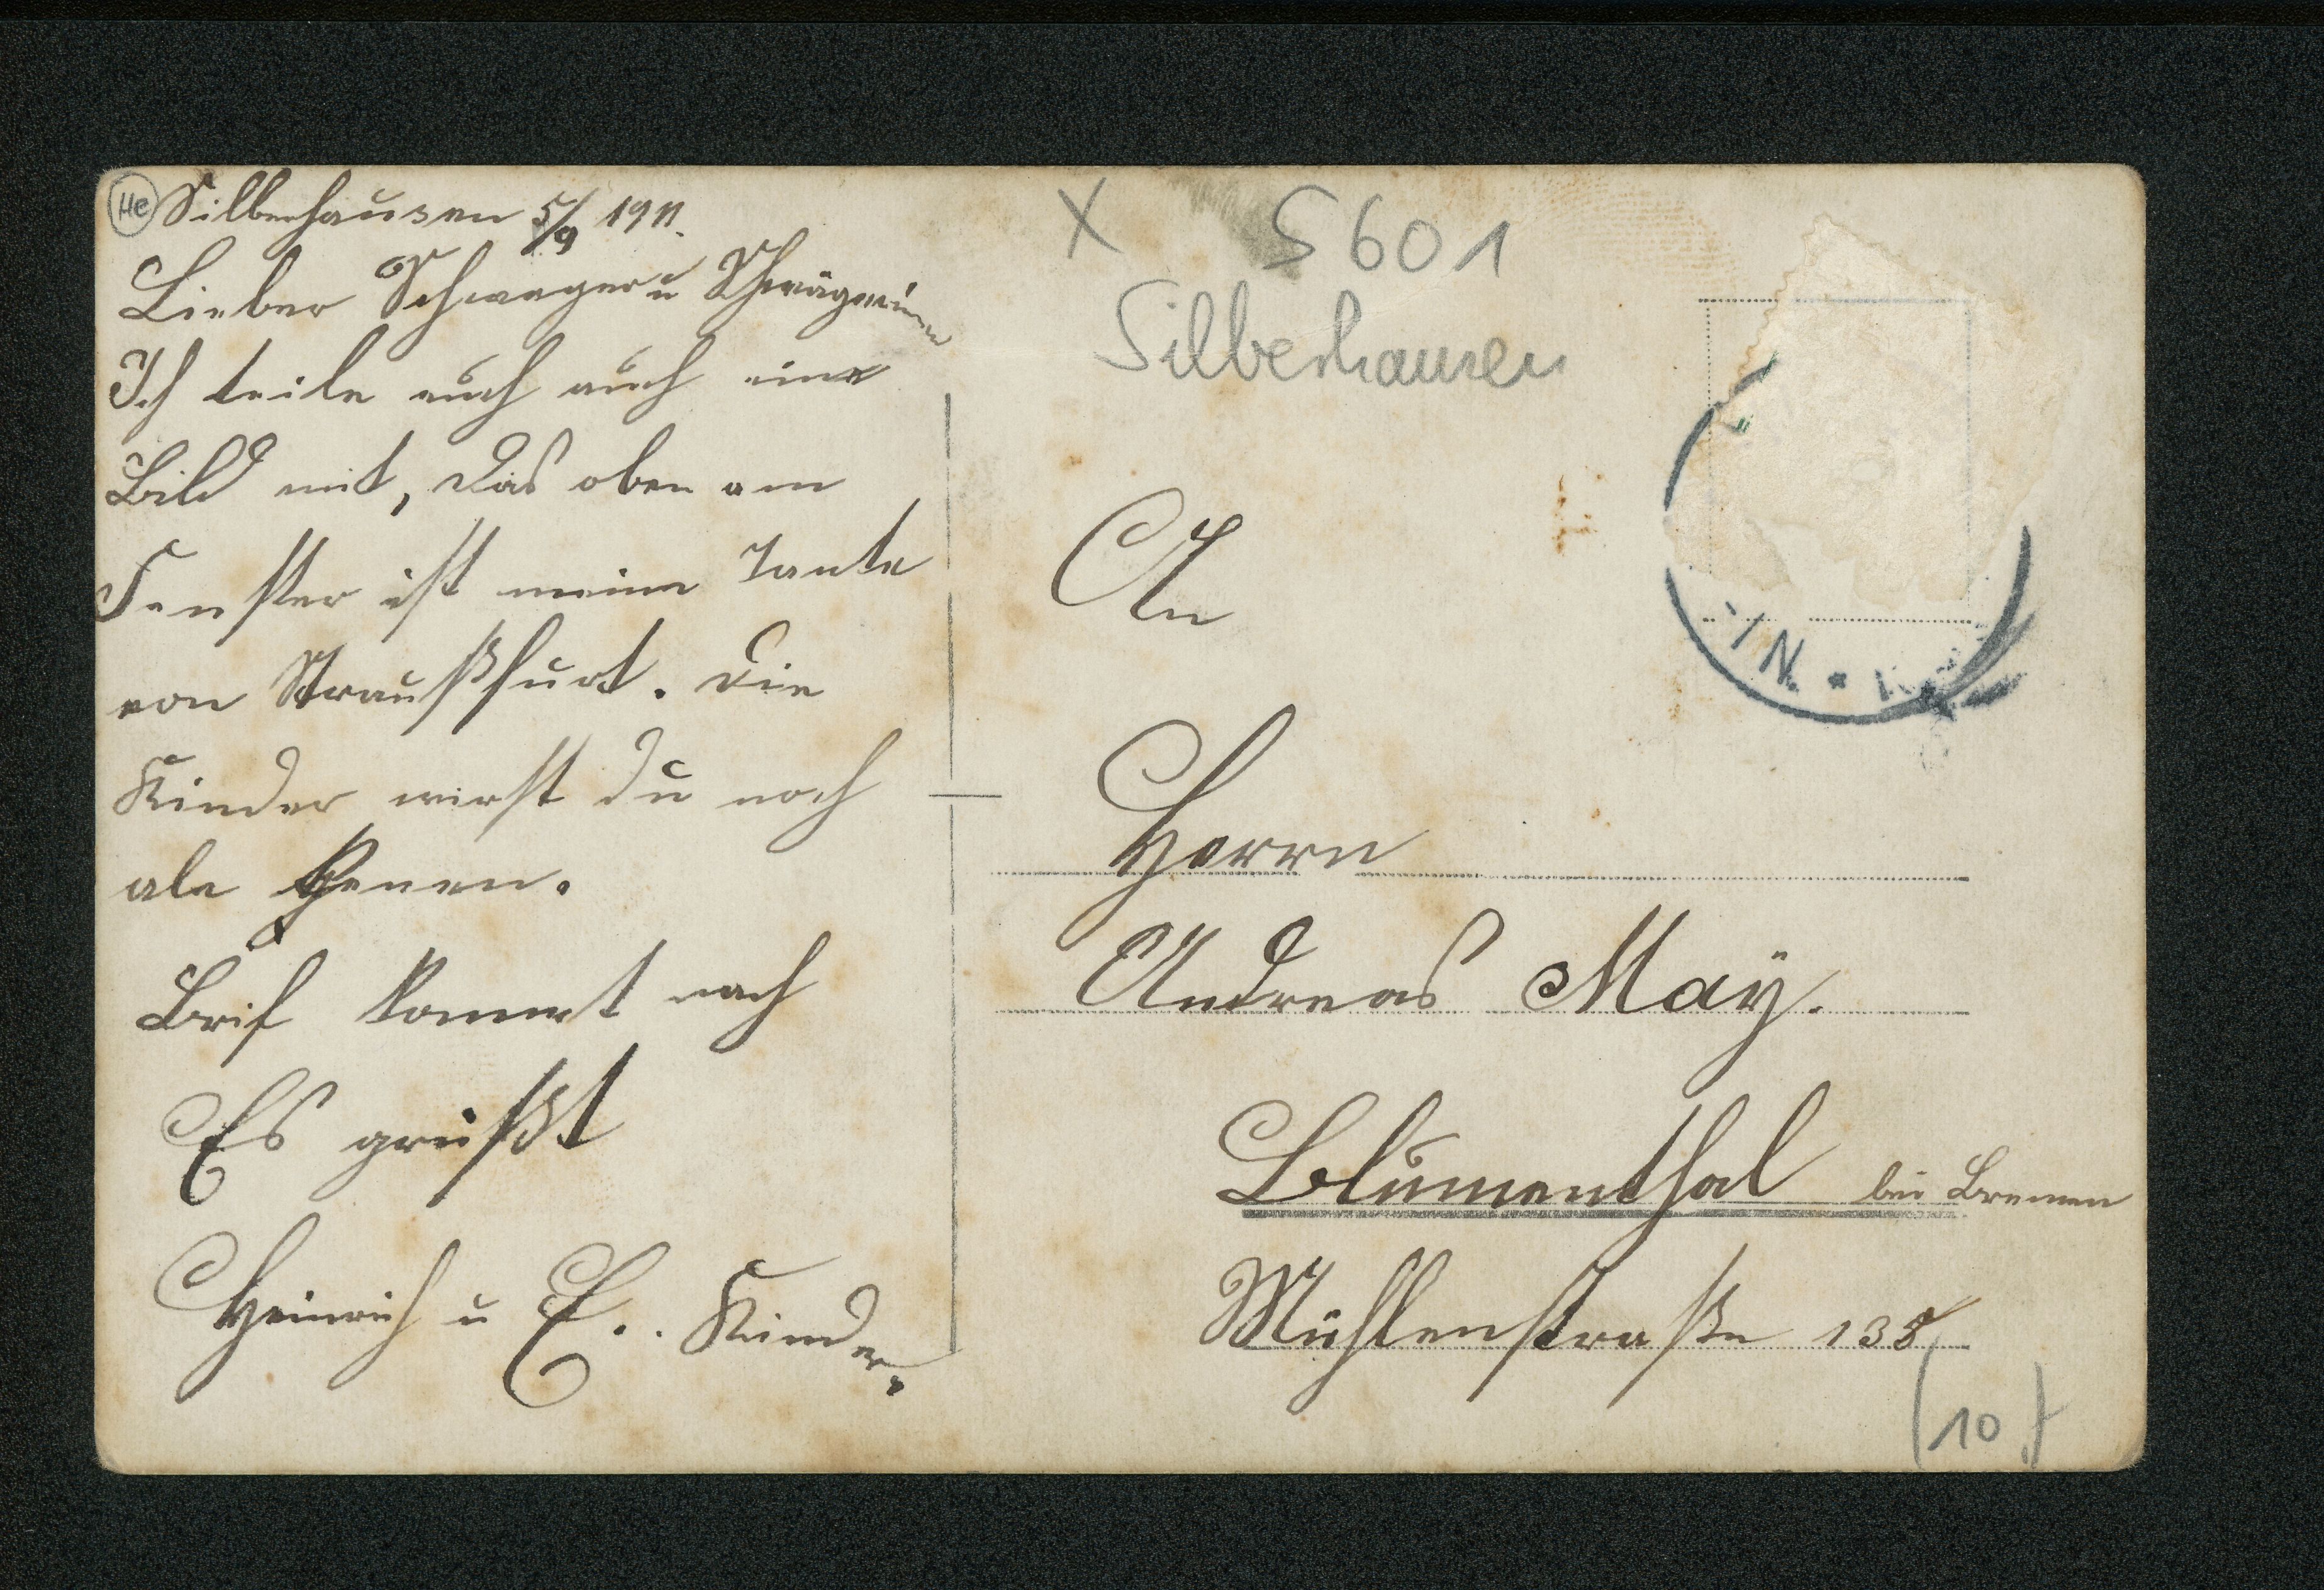 He
Silberhausen 5/9 1911.
Lieber Schwager u Schwägerinn
Ich teile euch auch eine
Bild mit, das oben am
Fenster ist meine Tante
von Straußfurt. Die
Kinder wirst du noch
ale kenen.
Brif kommt nach
Es grüßt
Heinrich u E.. Kinder.
X 5601
Silberhausen
An
Herrn
Andreas Maÿ.
Blumenthal bei Bremen
Mühlenstraße 138
(10)